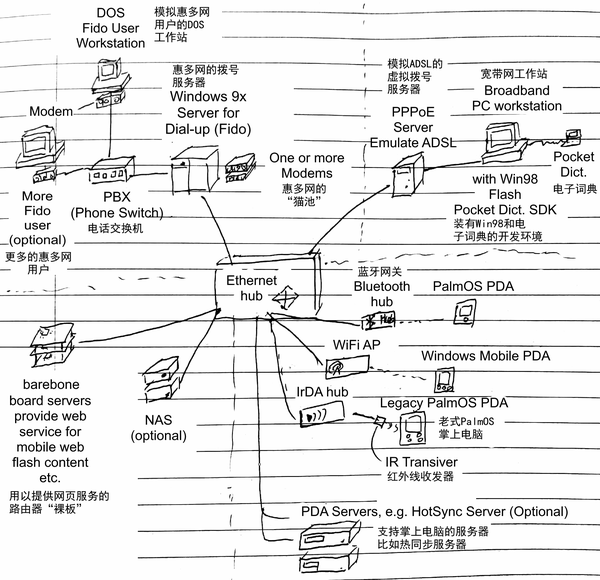 DOS
Fido User
Workstation
模拟惠多网
用户的DOS
工作站
Modem
惠多网的拨号
服务器
Windows 9x
Server for
Dial-up (Fido)
模拟ADSL的
虚拟拨号
服务器
PPPoE
Server
Emulate ADSL
宽带网工作站
Broadband
PC workstation
More
Fido
user
(optional)
更多的惠多网
用户
PBX
(Phone Switch)
电话交换机
One or more
Modems
惠多网的
“猫池”
with Win98
Flash
Pocket Dict. SDK
装有Win98和电
子词典的开发环境
Pocket
Dict.
电子词典
Ethernet
hub
蓝牙网关
Bluetooth
hub
Hub
PalmOS PDA
WiFi AP
Windows Mobile PDA
IrDA hub
Legacy PalmOS PDA
老式PalmOS
掌上电脑
IR Transiver
红外线收发器
barebone
board servers
provide web
service for
mobile web
flash content
etc.
用以提供网页服务的
路由器“裸板”
NAS
(optional)
PDA Servers, e.g. HotSync Server (Optional)
支持掌上电脑的服务器
比如热同步服务器